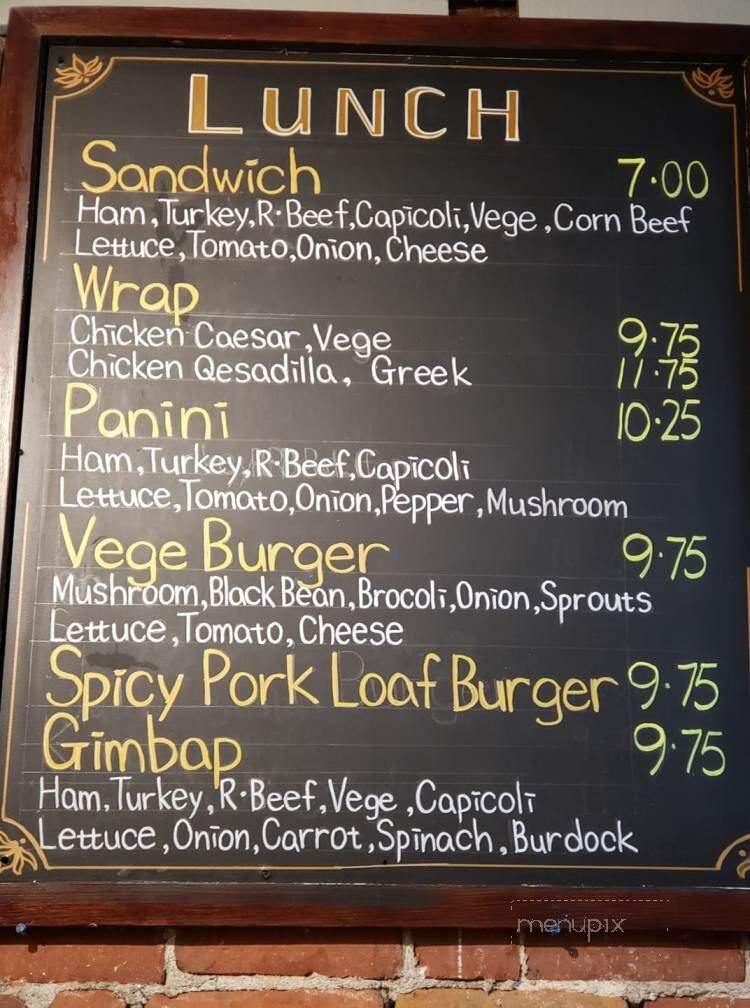 LUNCH
Sandwich 7.00
Ham, Turkey, R·Beef, Capicoli, Vege, Corn Beef
Lettuce, Tomato, Onion, Cheese
Wrap
Chicken Caesar, Vege 9.75
Chicken Qesadilla, Greek 11.75
Panini 10.25
Ham, Turkey, R·Beef, Capicoli
Lettuce, Tomato, Onion, Pepper, Mushroom
Vege Burger 9.75
Mushroom, Black Bean, Brocoli, Onion, Sprouts
Lettuce, Tomato, Cheese
Spicy Pork Loaf Burger 9.75
Gimbap 9.75
Ham, Turkey, R·Beef, Vege, Capicoli
Lettuce, Onion, Carrot, Spinach, Burdock
menupix